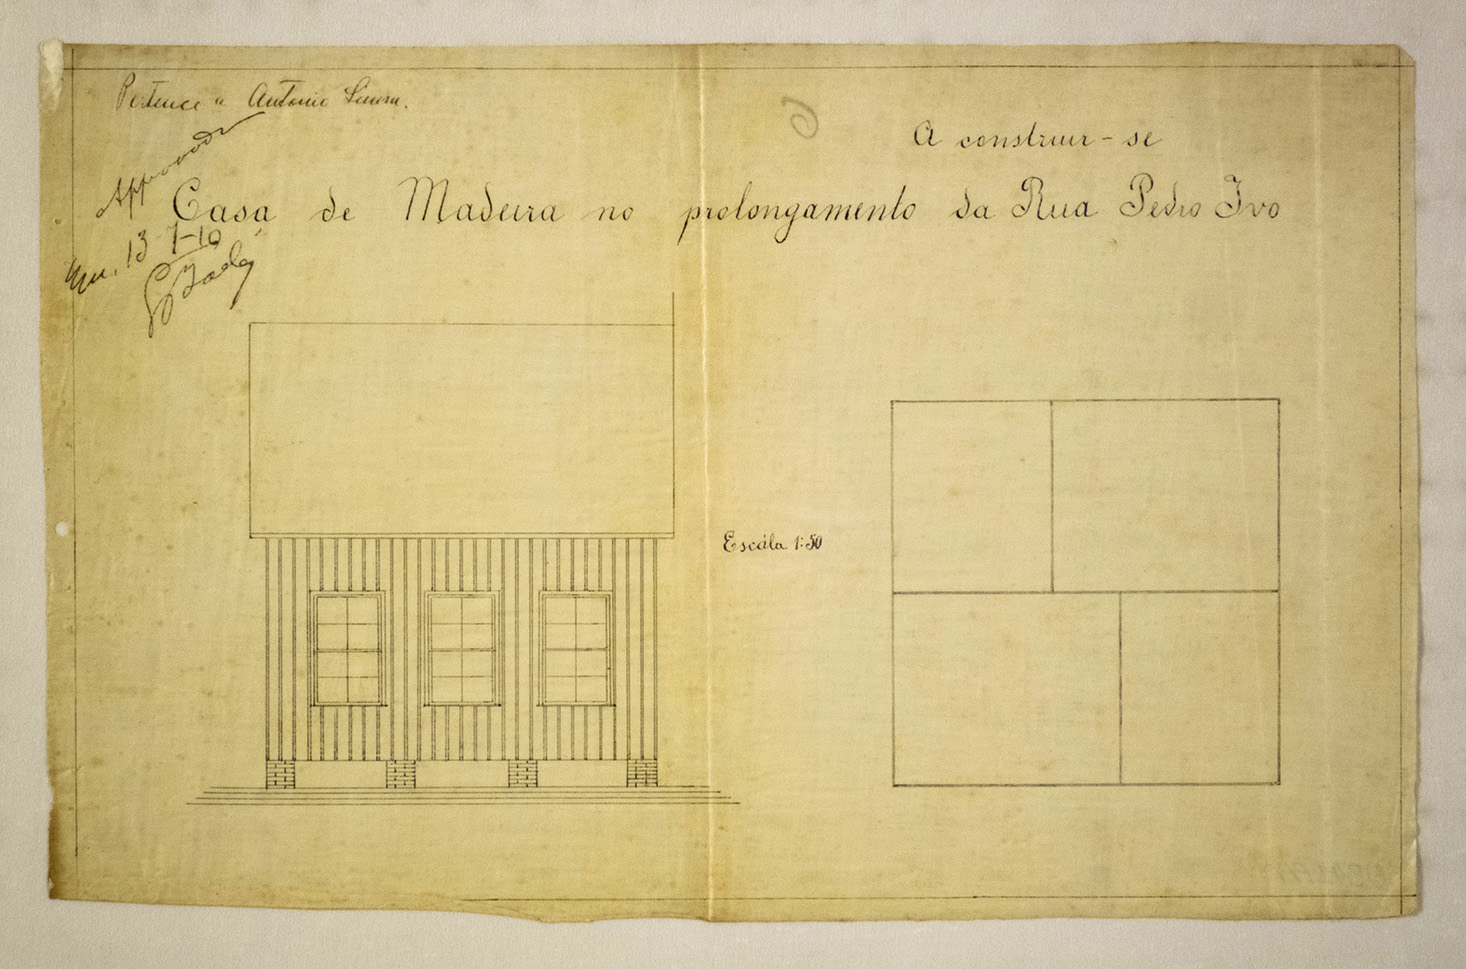 Pertence a Antonio
Approvado
Em. 13-7-10
6
A construir-se
Casa de Madeira no prolongamento da Rua Pedro Ivo
Escála 1:50